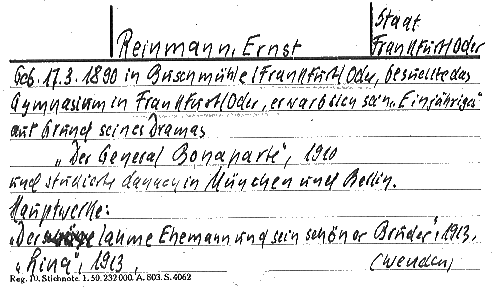 Staat
Reinmann, Ernst Frankfurt/Oder
Geb. 17.3.1890 in Buschmühle/Frankfurt/Oder, besuchte das
Gymnasium in Frankfurt/Oder, erwarb sich sein „Einjähriges"
auf Grund seines Dramas
„Der General Bonaparte", 1910
und studierte danach in München und Berlin.
Hauptwerke:
„Der lahme Ehemann und sein schöner Bruder", 1913.
1913,
(wenden)
Reg. 10. Stichnote. 1. 50. 232000. A. 803. S. 4062